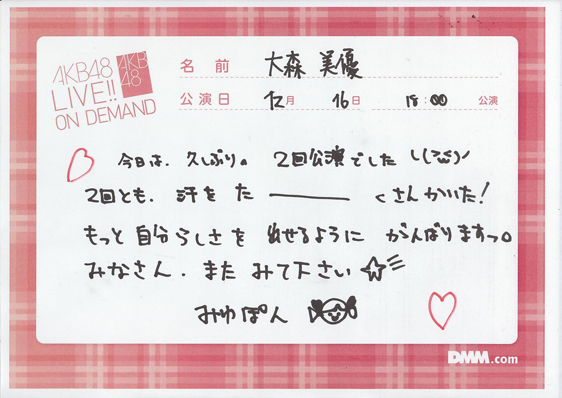 AKB48
LIVE!!
ON DEMAND
AKB
48
名前 大森 美優
公演日 12月 16日 18:00 公演
今日は、久しぶり。2回公演でした \(^ω^)/
2回とも、汗をた――くさんかいた!
もっと自分らしさを 出せるように がんばりますっ。
みなさん、またみて下さい☆彡
みゆぽん
DMM.com